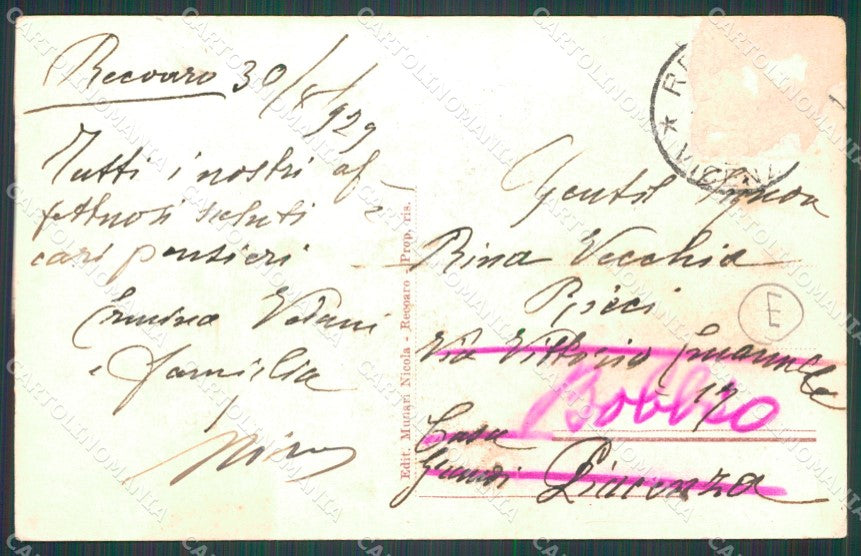 Recoaro 30/8/929
Tutti i nostri af
fettuosi saluti e
cari pensieri
Ermina
e famiglia
Edit. Munari Nicola - Recoaro - Prop. ris.
VICEN
Gentil Signora
Rina Vecchia
Ricci
Via Vittorio Emanuele
17
Bobbio
Casa
Grandi Piacenza
E
CARTOLINOMANIA